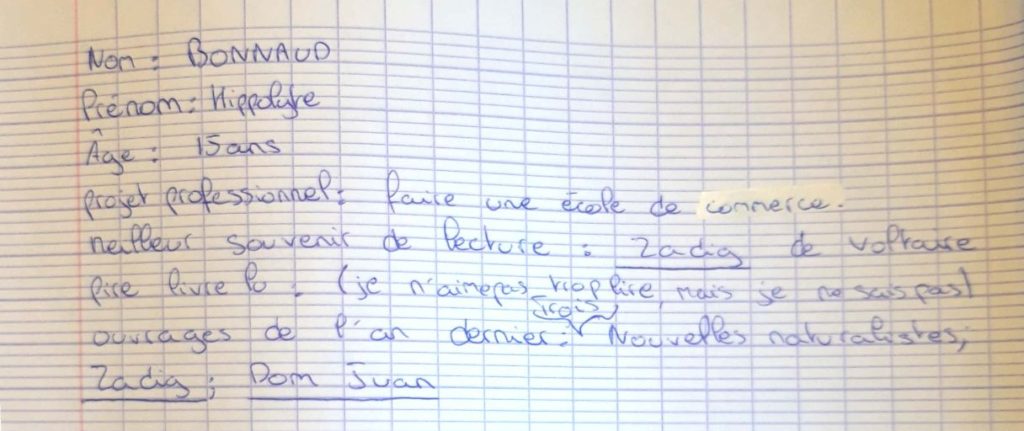 Nom : BONNAUD
Prénom : Hippolyte
Âge : 15 ans
projet professionnel : faire une école de commerce.
meilleur souvenir de lecture : Zadig de voltaire
pire livre lu : (je n'aime pas trop lire, mais je ne sais pas)
trois
ouvrages de l'an dernier : Nouvelles naturalistes,
Zadig ; Dom Juan